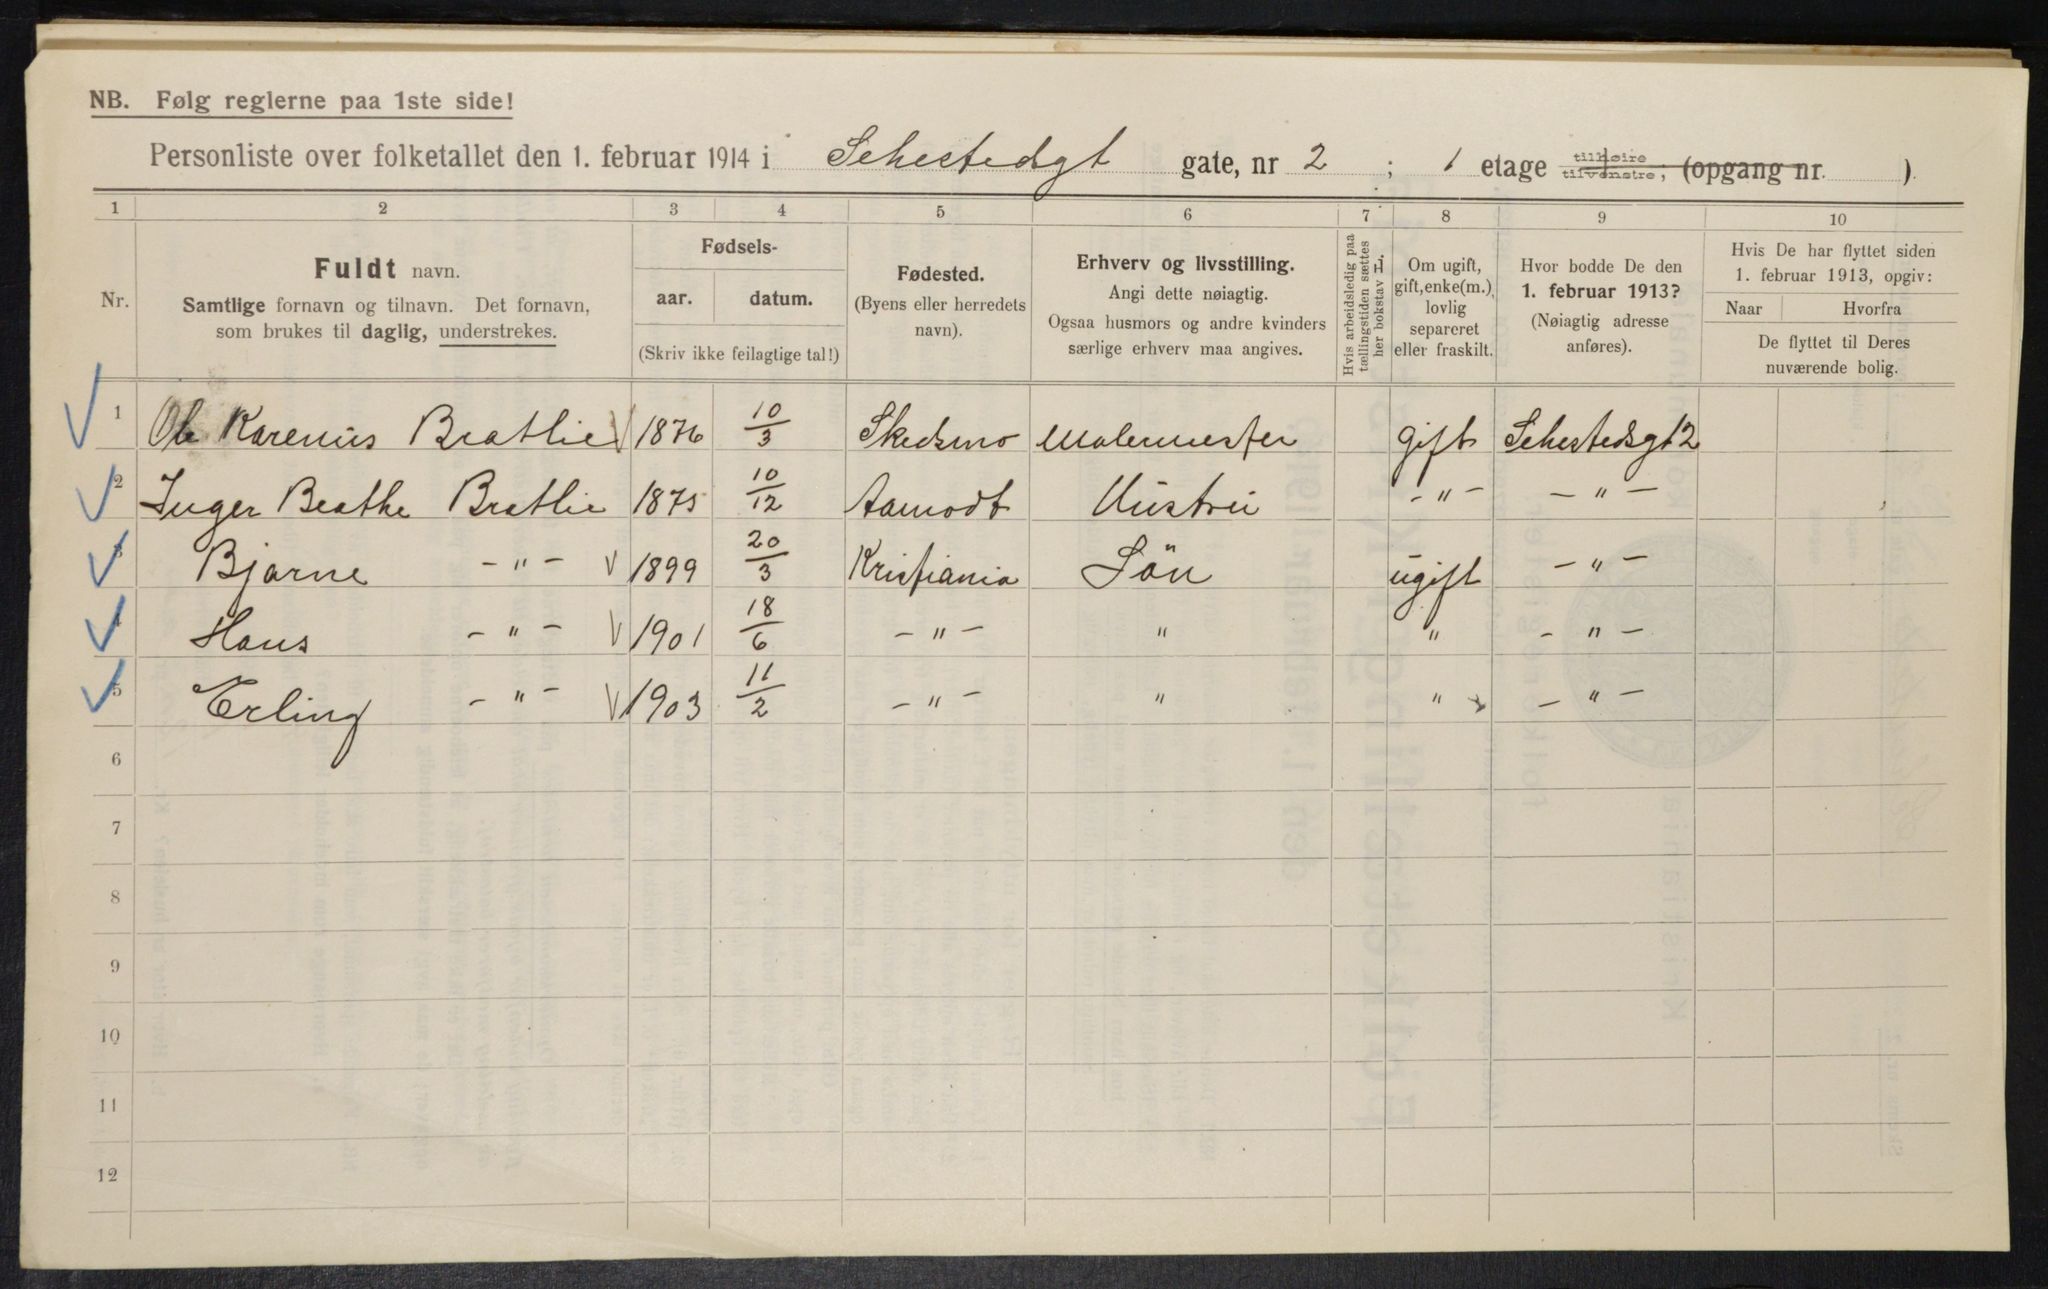 NB. Følg reglerne paa 1ste side!
Personliste over folketallet den 1. februar 1914 i Sehestedsgt gate, nr 2 ; 1 etage tilhøire tilvenstre; (opgang nr. ).
1 2 3 4 5 6 7 8 9 10
Nr.
Fuldt navn.
Samtlige fornavn og tilnavn. Det fornavn,
som brukes til daglig, understrekes.
Fødsels-
aar. datum.
(Skriv ikke feilagtige tal!)
Fødested.
(Byens eller herredets
navn).
Erhverv og livsstilling.
Angi dette nøiagtig.
Ogsaa husmors og andre kvinders
særlige erhverv maa angives.
Hvis arbeidsledig paa
tællingstiden sættes
her bokstav L.
Om ugift,
gift, enke(m.),
lovlig
separeret
eller fraskilt.
Hvor bodde De den
1. februar 1913?
(Nøiagtig adresse
anføres).
Hvis De har flyttet siden
1. februar 1913, opgiv:
Naar Hvorfra
De flyttet til Deres
nuværende bolig.
1 Ole Karenius Bratlie 1876 10/3 Skedsmo Malermester gift Sehestedsgt 2
2 Inger Beathe Bratlie 1875 10/12 Aamodt Hustru - " - - " -
3 Bjarne - " - 1899 20/3 Kristiania Sön ugift - " -
4 Hans - " - 1901 18/6 - " - " " - " -
5 Erling - " - 1903 11/2 - " - " " - " -
6
7
8
9
10
11
12